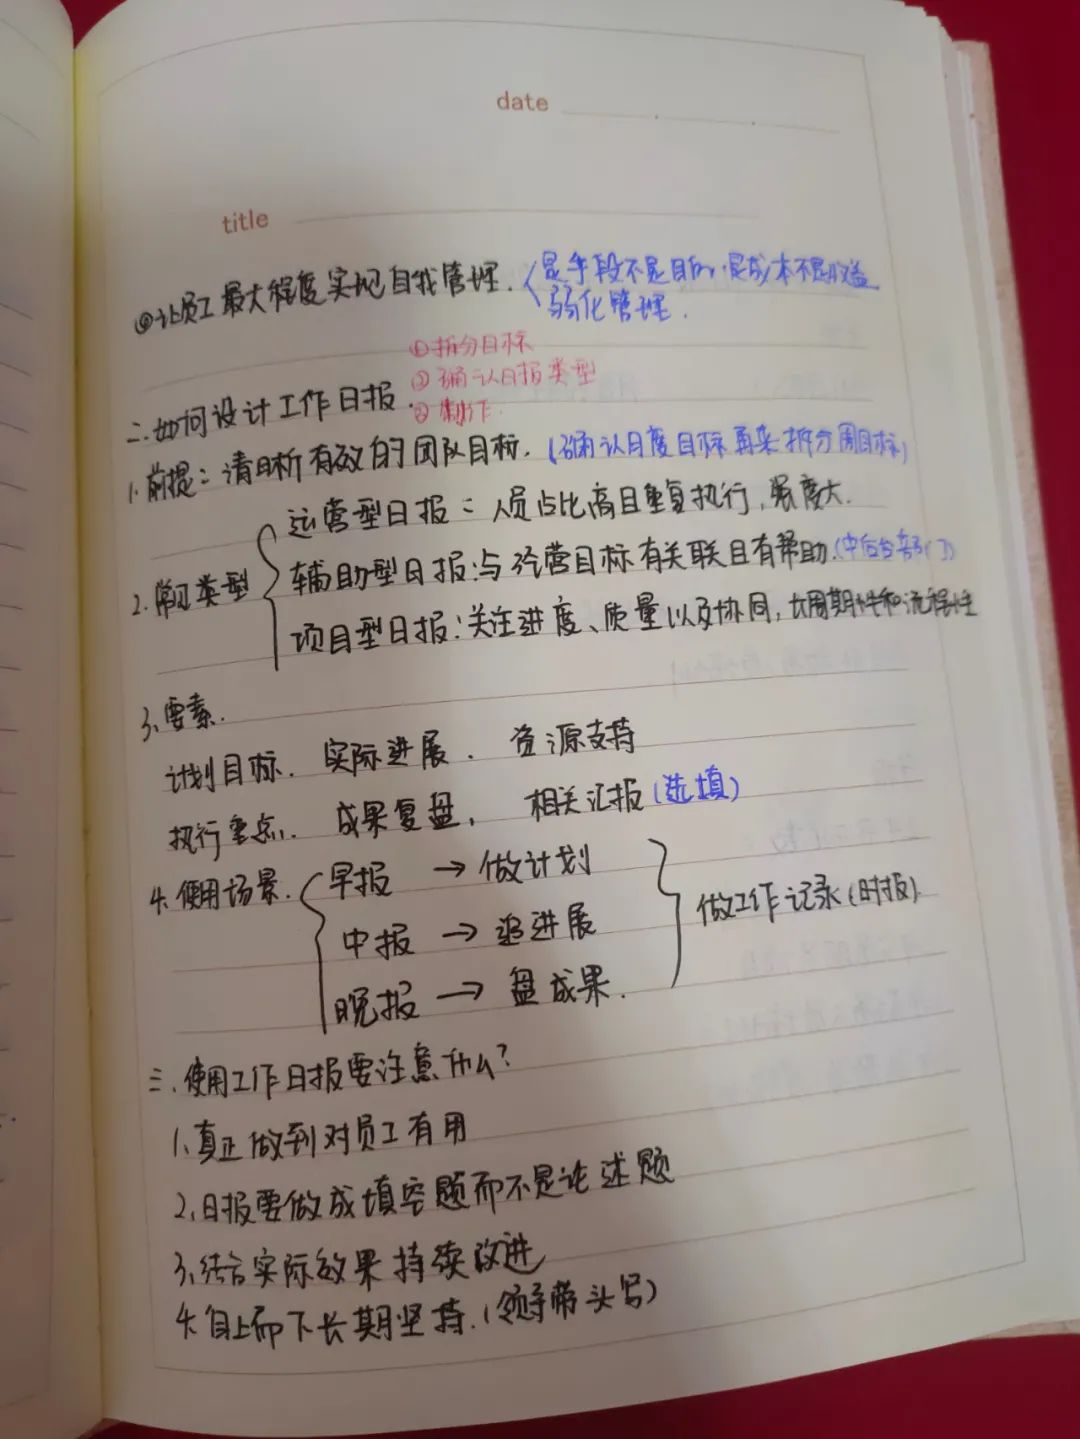 date
title
让员工最大程度实现自我管理.
是手段不是目的,是成本不是收益
弱化管理.
二.如何设计工作日报.
①拆分目标
②确认日报类型
③制作
1.前提:清晰有效的团队目标.(确认月度目标再来拆分周目标)
2.常见类型
运营型日报:人员占比高且重复执行,强度大.
辅助型日报:与经营目标有关联且有帮助.(中后台部门)
项目型日报:关注进度、质量以及协同,长周期性和流程性
3、要素.
计划目标. 实际进展. 资源支持
执行重点. 成果复盘, 相关汇报(选填)
4.使用场景.
早报 → 做计划
中报 → 追进展
晚报 → 盘成果.
做工作记录(时报).
三.使用工作日报要注意什么?
1、真正做到对员工有用
2、日报要做成填空题而不是论述题
3、结合实际效果持续改进
4.自上而下长期坚持.(领导带头写)